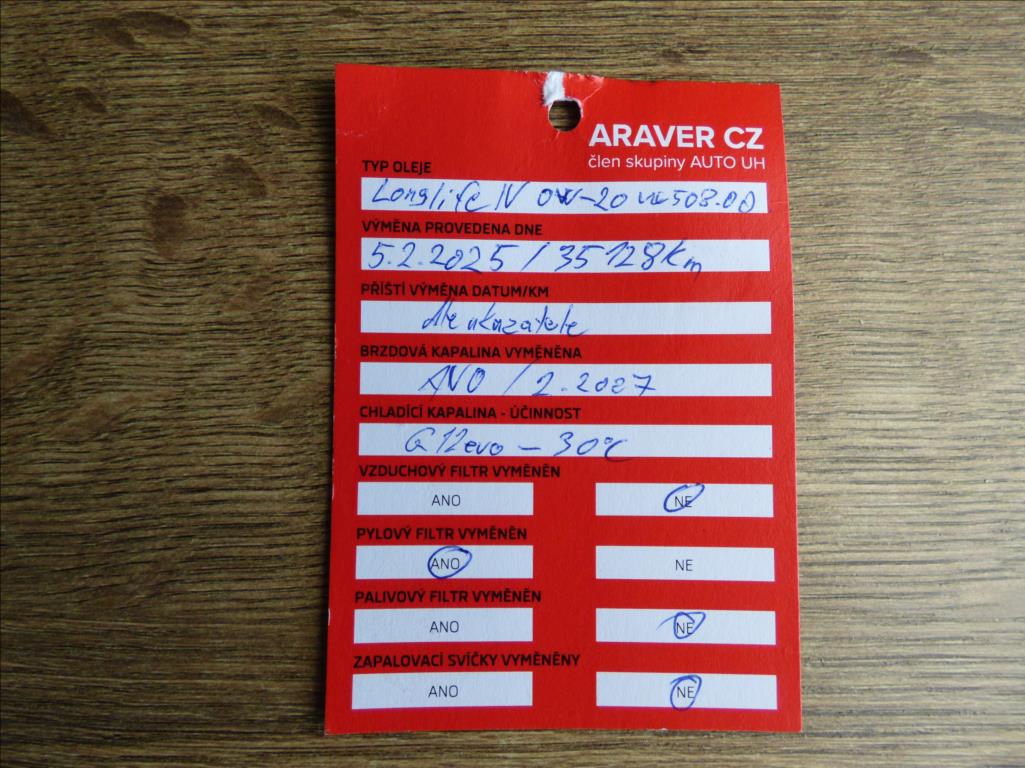 ARAVER CZ
člen skupiny AUTO UH
TYP OLEJE
Longlife IV 0W-20 VW 508.00
VÝMĚNA PROVEDENA DNE
5.2.2025 / 35128 Km
PŘÍŠTÍ VÝMĚNA DATUM/KM
dle ukazatele
BRZDOVÁ KAPALINA VYMĚNĚNA
ANO / 2.2027
CHLADÍCÍ KAPALINA - ÚČINNOST
G12evo - 30°C
VZDUCHOVÝ FILTR VYMĚNĚN
ANO NE
PYLOVÝ FILTR VYMĚNĚN
ANO NE
PALIVOVÝ FILTR VYMĚNĚN
ANO NE
ZAPALOVACÍ SVÍČKY VYMĚNĚNY
ANO NE